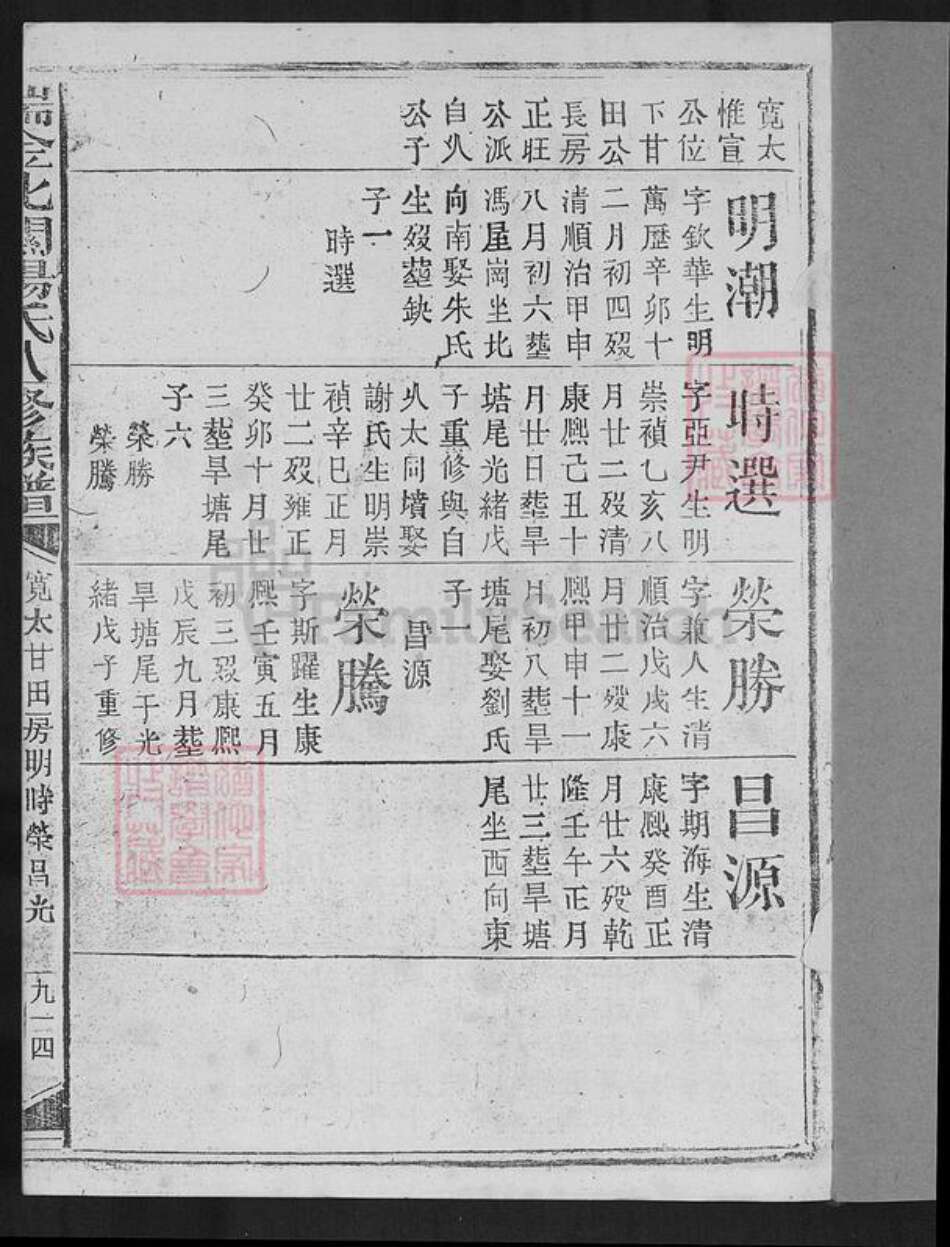 寬太
惟宣
公位
下甘
田公
長房
正旺
公派
自久
公子
明潮
字欽華生明
萬歷辛卯十
二月初四歿
清順治甲申
八月初六塟
馮屋崗坐北
向南娶朱氏
生歿塟缺
子一
時選
時選
字亞尹生明
崇禎乙亥八
月廿二歿清
康熙己丑十
月廿日塟旱
塘尾光緒戊
子重修與自
久太同墳娶
謝氏生明崇
禎辛巳正月
廿二歿雍正
癸卯十月廿
三塟旱塘尾
子六
榮勝
榮騰
榮勝
字兼人生清
順治戊戌六
月廿二歿康
熙甲申十一
月初八塟旱
塘尾娶劉氏
子一
昌源
榮騰
字斯躍生康
熙壬寅五月
初三歿康熙
戊辰九月塟
旱塘尾于光
緒戊子重修
昌源
字期海生清
康熙癸酉正
月廿六歿乾
隆壬午正月
廿三塟旱塘
尾坐西向東
瑞金北關楊氏八修族譜
寬太甘田房明時榮昌光
九一四
FamilySearch